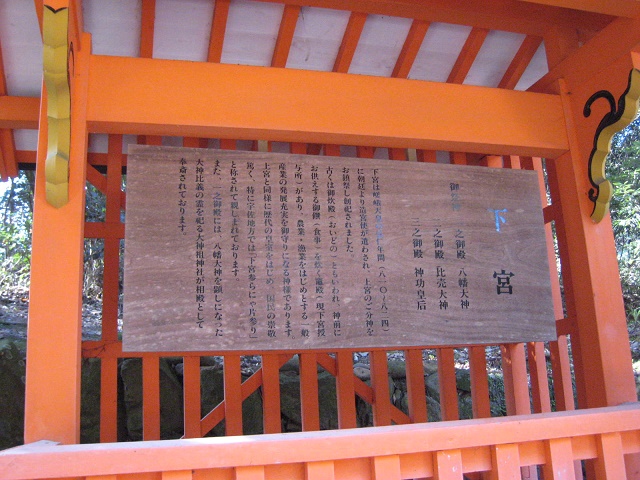 下宮
御祭神
一之御殿 八幡大神
二之御殿 比売大神
三之御殿 神功皇后
下宮は嵯峨天皇の弘仁年間(八一〇~八二四)
に朝廷より造宮使が遣わされ、上宮のご分神を
お鎮祭し創祀されました。
古くは御炊殿(おいどの)ともいわれ、神前に
お供えする御饌(食事)を炊く竈殿(現下宮授
与所)があり、農業・漁業をはじめとする一般
産業の発展充実を御守りになる神様であります。
上宮と同様に歴代の皇室をはじめ、国民の崇敬
篤く、特に宇佐地方では「下宮参らにゃ片参り」
と称されて親しまれております。
また、一之御殿には、八幡大神を顕しになった
大神比義の霊を祀る大神祖神社が相殿として
奉斎されております。